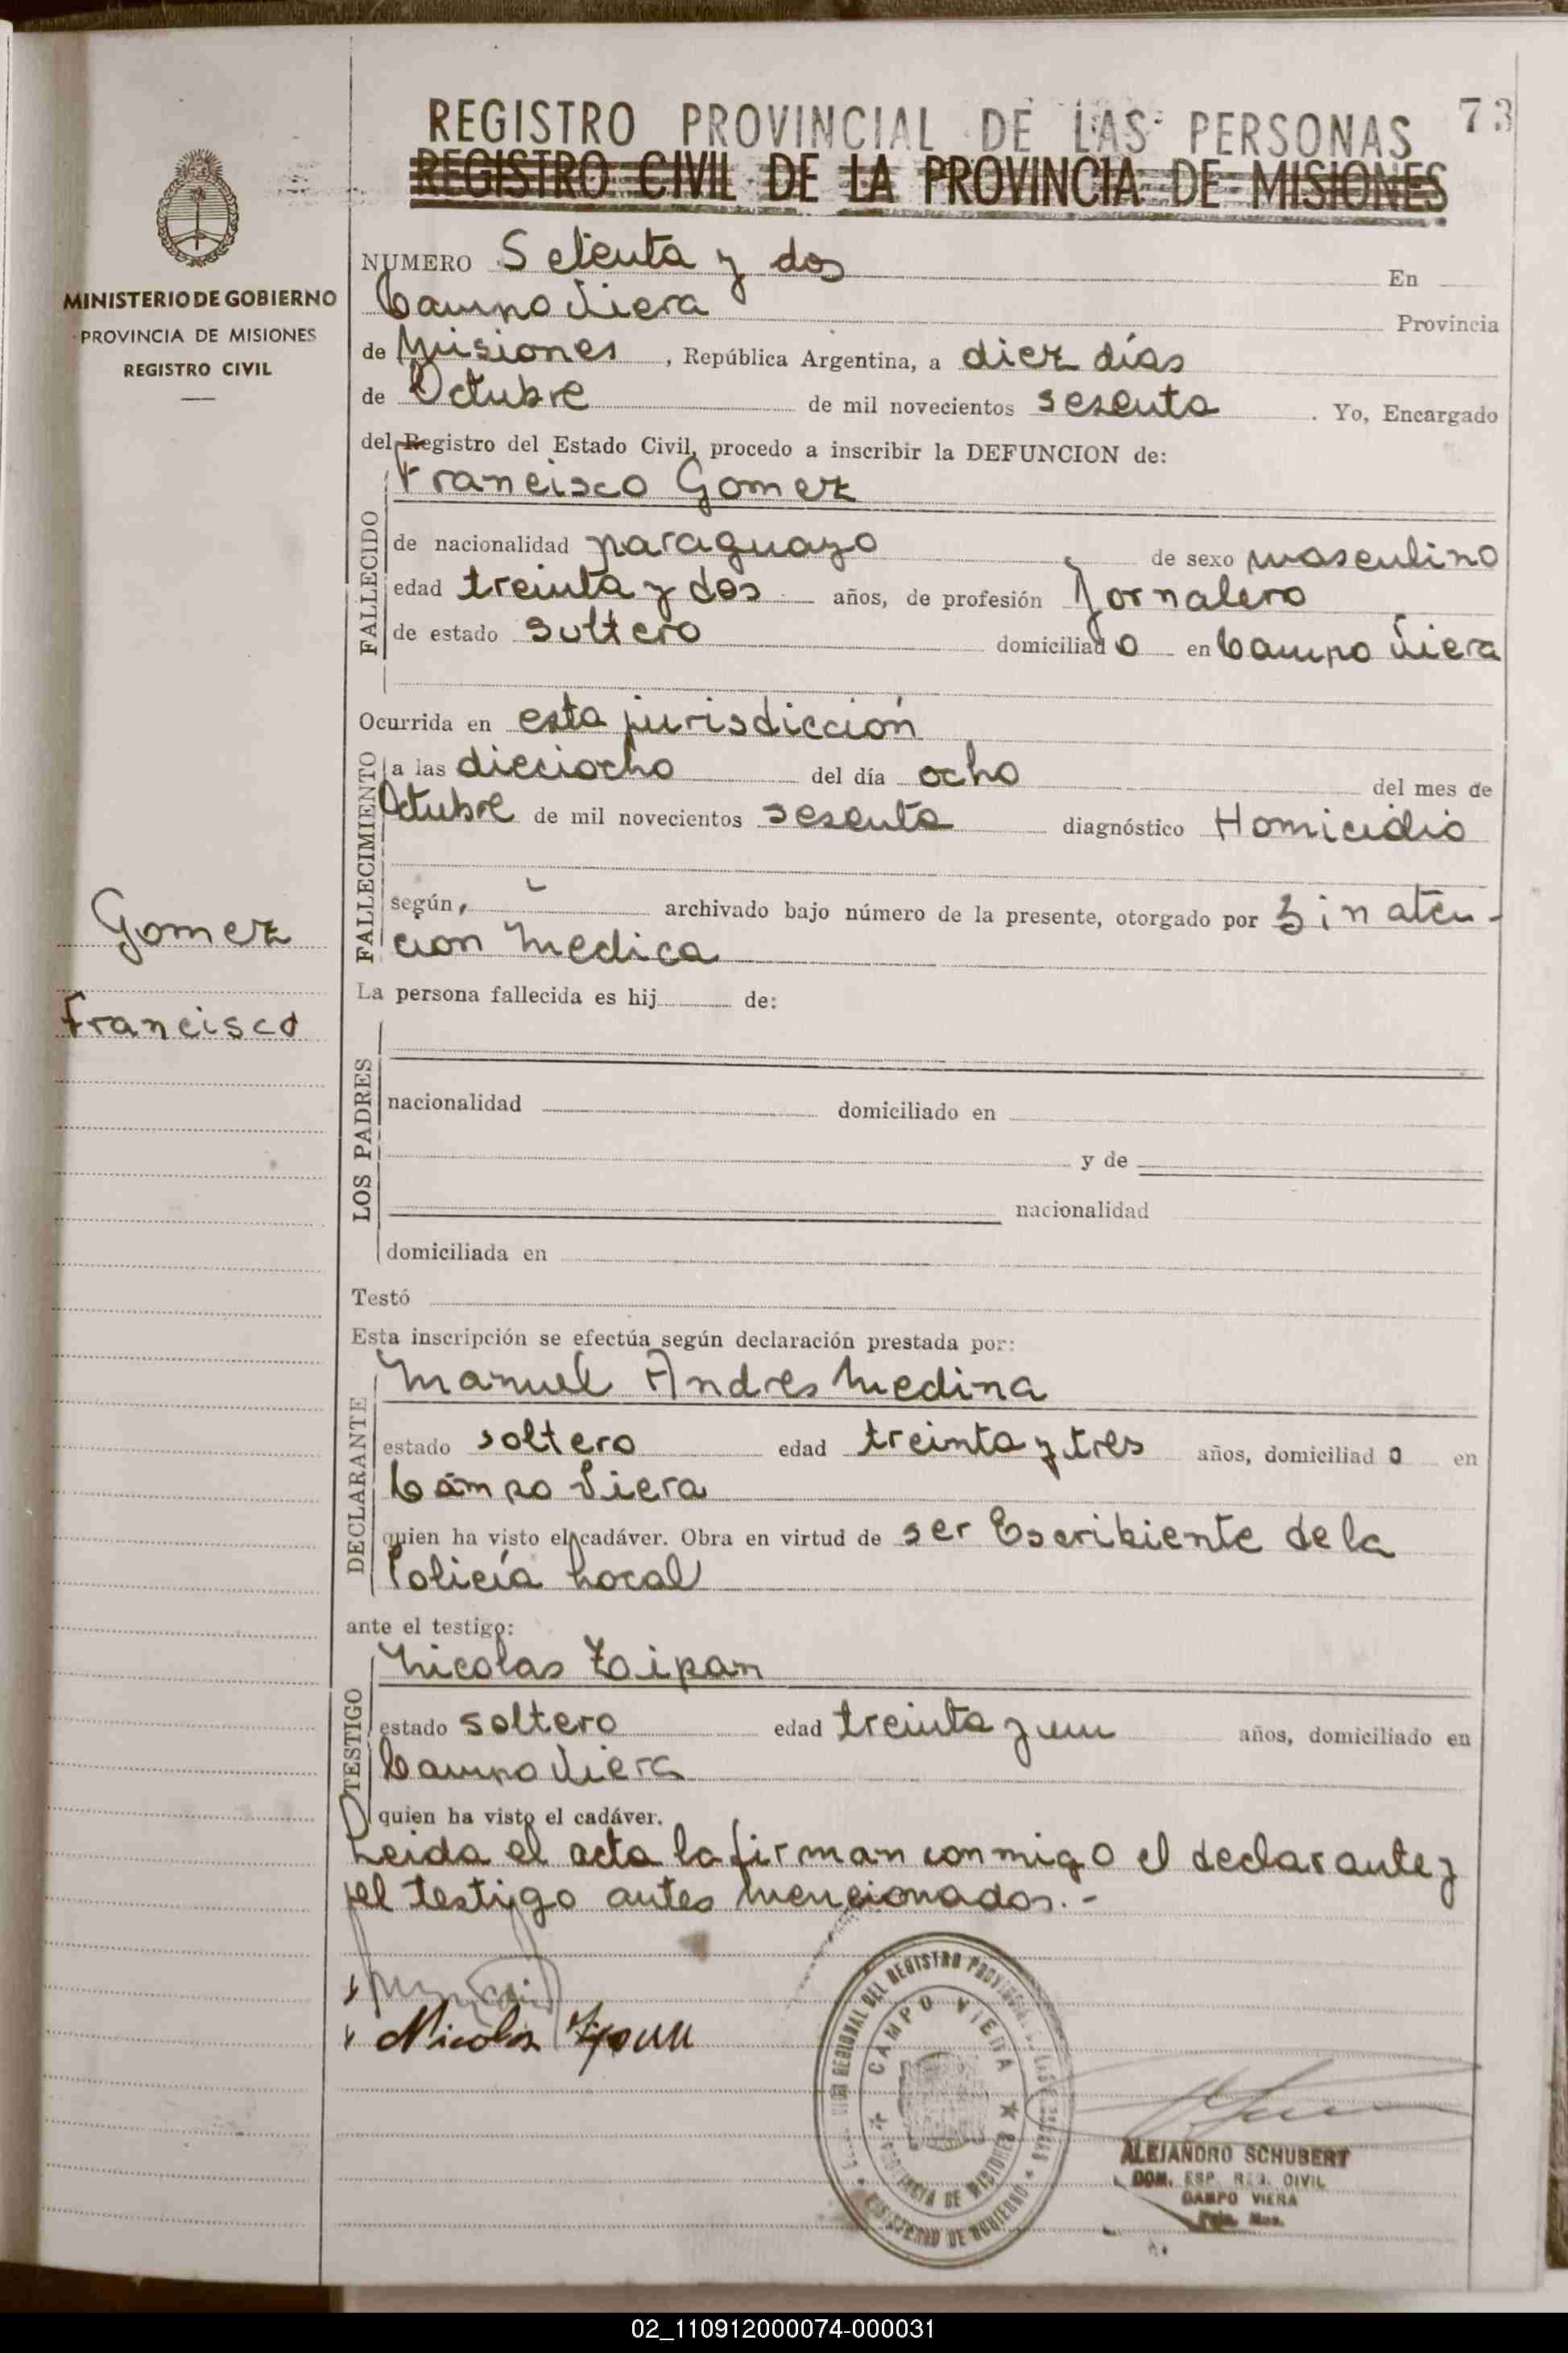 REGISTRO PROVINCIAL DE LAS PERSONAS
73
REGISTRO CIVIL DE LA PROVINCIA DE MISIONES
MINISTERIO DE GOBIERNO
PROVINCIA DE MISIONES
REGISTRO CIVIL
NUMERO Setenta y dos En
Campo Viera Provincia
de Misiones, República Argentina, a diez días
de Octubre de mil novecientos sesenta. Yo, Encargado
del Registro del Estado Civil, procedo a inscribir la DEFUNCION de:
FALLECIDO
Francisco Gomez
de nacionalidad paraguayo de sexo masculino
edad treinta y dos años, de profesión Jornalero
de estado Soltero domiciliado en Campo Viera
Ocurrida en esta jurisdicción
FALLECIMIENTO
a las dieciocho del día ocho del mes de
Octubre de mil novecientos sesenta diagnóstico Homicidio
según, archivado bajo número de la presente, otorgado por Sin aten-
cion Medica
Gomez
Francisco
La persona fallecida es hij de:
LOS PADRES
nacionalidad domiciliado en
y de
nacionalidad
domiciliada en
Testó
Esta inscripción se efectúa según declaración prestada por:
DECLARANTE
Manuel Andres Medina
estado soltero edad treinta y tres años, domiciliado en
Cámpo Viera
quien ha visto el cadáver. Obra en virtud de ser Escribiente de la
Policía Local
ante el testigo:
TESTIGO
Nicolas Zipan
estado soltero edad treinta y un años, domiciliado en
Campo Viera
quien ha visto el cadáver.
Leida el acta la firman conmigo el declarante y
el testigo antes mencionados.-
Nicolas
REGIONAL DEL REGISTRO PROVINCIAL DE LAS PERSONAS
CAMPO VIERA
PROVINCIA DE MISIONES
MINISTERIO DE GOBIERNO
ALEJANDRO SCHUBERT
DOM. ESP. REG. CIVIL
CAMPO VIERA
Pcia. Mnes.
02_110912000074-000031